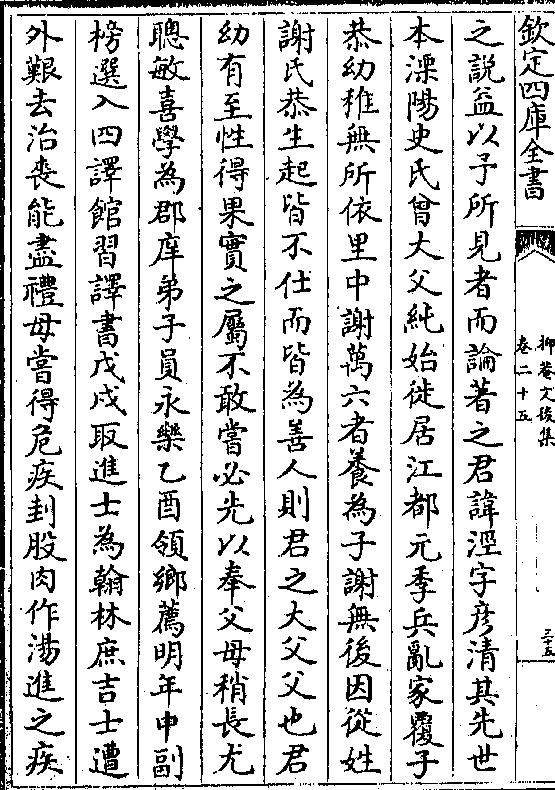 欽定四庫全書
抑菴文後集
卷二十五
三十五
之說益以予所見者而論著之君諱涇字彦清其先世
本溧陽史氏曾大父純始徙居江都元季兵亂家覆子
恭幼稚無所依里中謝萬六者養為子謝無後因從姓
謝氏恭生起皆不仕而皆為善人則君之大父父也君
幼有至性得果實之屬不敢嘗必先以奉父母稍長尤
聰敏喜學為郡庠弟子員永樂乙酉領鄉薦明年中副
榜選入四譯館習譯書戊戌取進士為翰林庶吉士遭
外艱去治喪能盡禮母嘗得危疾刲股肉作湯進之疾